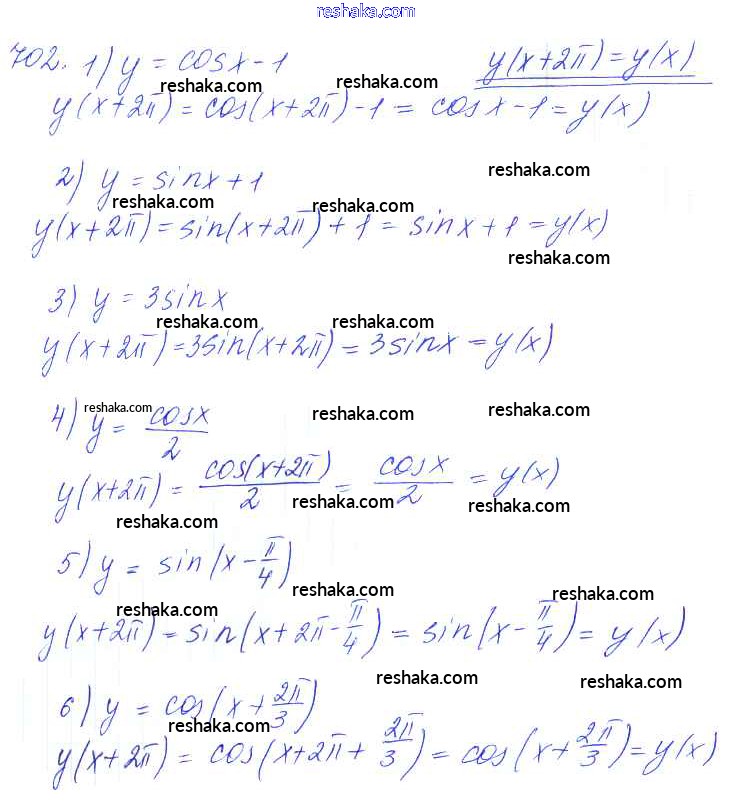 reshaka.com
702. 1) y = cosx - 1 y(x+2π) = y(x)
reshaka.com reshaka.com
y(x+2π) = cos(x+2π) - 1 = cosx - 1 = y(x)
reshaka.com
2) y = sinx + 1
reshaka.com reshaka.com
y(x+2π) = sin(x+2π) + 1 = sinx + 1 = y(x)
reshaka.com
3) y = 3sinx
reshaka.com reshaka.com
y(x+2π) = 3sin(x+2π) = 3sinx = y(x)
reshaka.com reshaka.com reshaka.com
4) y = cosx/2
y(x+2π) = cos(x+2π)/2 = cosx/2 = y(x)
reshaka.com reshaka.com
5) y = sin(x - π/4)
reshaka.com reshaka.com
y(x+2π) = sin(x+2π - π/4) = sin(x - π/4) = y(x)
reshaka.com reshaka.com
6) y = cos(x + 2π/3)
reshaka.com
y(x+2π) = cos(x+2π + 2π/3) = cos(x + 2π/3) = y(x)